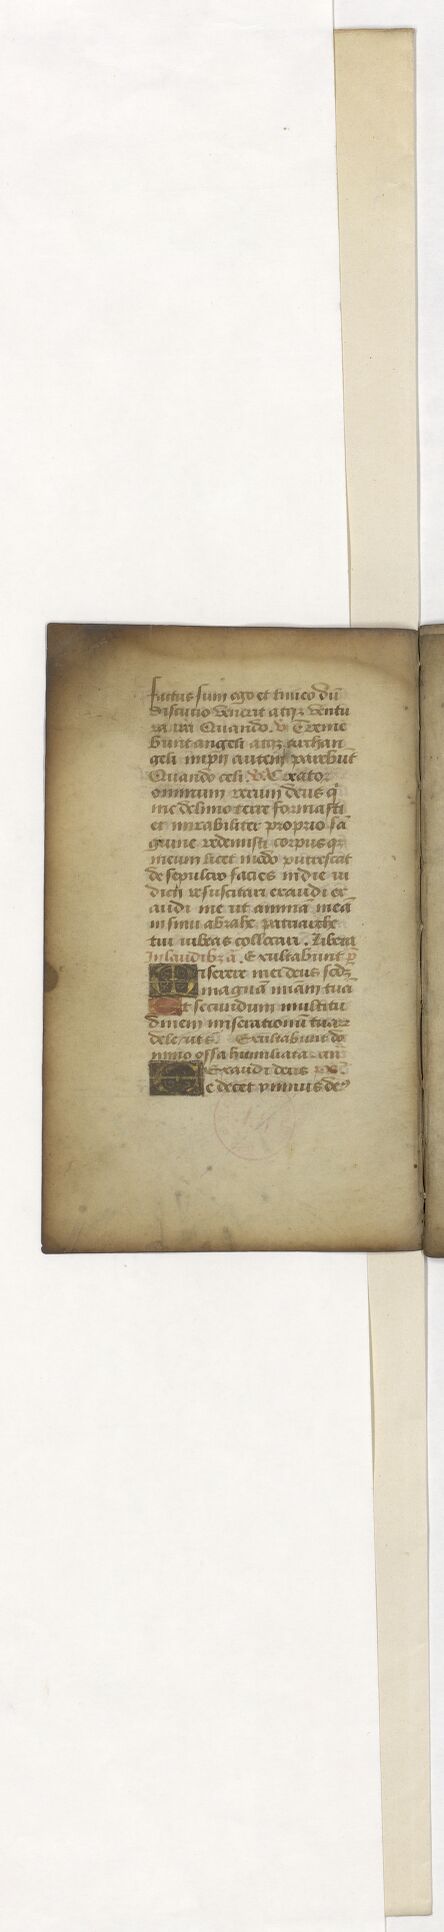 factus sum ego et timeo dū
discucio venerit atqꝫ ventu
ra ira Quando. v̄ Treme
bunt angeli atqꝫ archan
geli impii autem parebūt
Quando celi. v̄. Creator
omnium rerum deus q̄
me de limo terre formasti
et mirabiliter proprio sā
guine redemisti corpusqꝫ
meum licet modo putrescat
de sepulcro facies in die iu
dicii resuscitari exaudi ex
audi me ut animā meā
in sinu abrahe patriarche
tui iubeas collocari. Libera
In laudibꝫ ā. Exultabunt p̄
Miserere mei deus scdꝫ
magnā miām tuā
Et secundum multitu
dinem miserationū tuaꝝ
dele ut s̄. Exultabunt do
mino ossa humiliata. an̄
Exaudi deus ps̄
Te decet ymnus de⁹